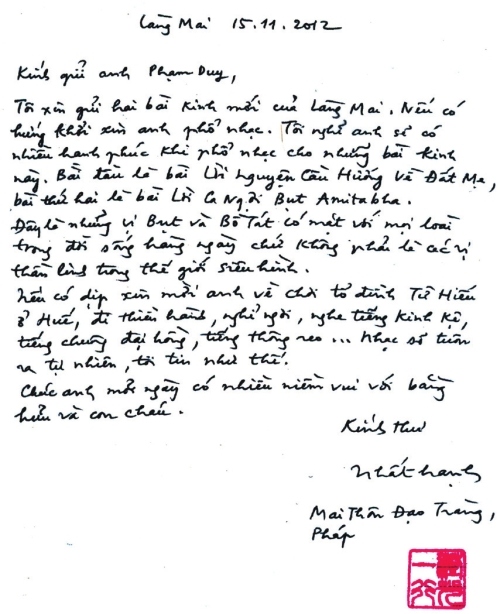 Làng Mai 15.11.2012
Kính gửi anh Phạm Duy,
Tôi xin gửi hai bài kinh mới của Làng Mai. Nếu có
hứng khởi xin anh phổ nhạc. Tôi nghĩ anh sẽ có
nhiều hạnh phúc khi phổ nhạc cho những bài kinh
này. Bài đầu là bài Lời Nguyện Cầu Hướng Về Đất Mẹ,
bài thứ hai là bài Lời Ca Ngợi Bụt Amitabha.
Đây là những vị Bụt và Bồ Tát có mặt với mọi loài
trong đời sống hàng ngày chứ không phải là các vị
thần linh trong thế giới siêu hình.
Nếu có dịp xin mời anh về chơi tổ đình Từ Hiếu
ở Huế, đi thiền hành, nghỉ ngơi, nghe tiếng kinh kệ,
tiếng chuông đại hồng, tiếng thông reo ... Nhạc sẽ tuôn
ra tự nhiên, tôi tin như thế.
Chúc anh mỗi ngày có nhiều niềm vui với bằng
hữu và con cháu.
Kính thư
Nhất Hạnh
Mai Thôn Đạo Tràng,
Pháp